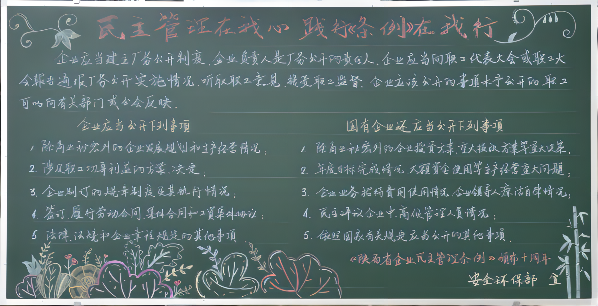 民主管理在我心 践行《条例》在我行
企业应当建立厂务公开制度,企业负责人是厂务公开的责任人,企业应当向职工代表大会或职工大
会报告通报厂务公开实施情况,听取职工意见,接受职工监督,企业应该公开的事项未予公开的,职工
可以向有关部门或公会反映。
企业应当公开下列事项
1. 除商业秘密外的企业发展规划和生产经营情况;
2. 涉及职工切身利益的方案、决定;
3. 企业制订的规章制度及其执行情况;
4. 签订、履行劳动合同、集体合同和工资集体协议;
5. 法律、法规和企业章程规定的其他事项
国有企业还应当公开下列事项
1. 除商业秘密外的企业投资方案、重大决策
2. 年度目标完成情况、大额资金使用等生产经营重大问题;
3. 企业业务招待费用使用情况、企业领导人廉洁自律情况;
4. 民主评议企业中高级管理人员情况;
5. 依照国家有关规定应当公开的其他事项
《陕西省企业民主管理条例》颁布十周年
安全环保部 宣